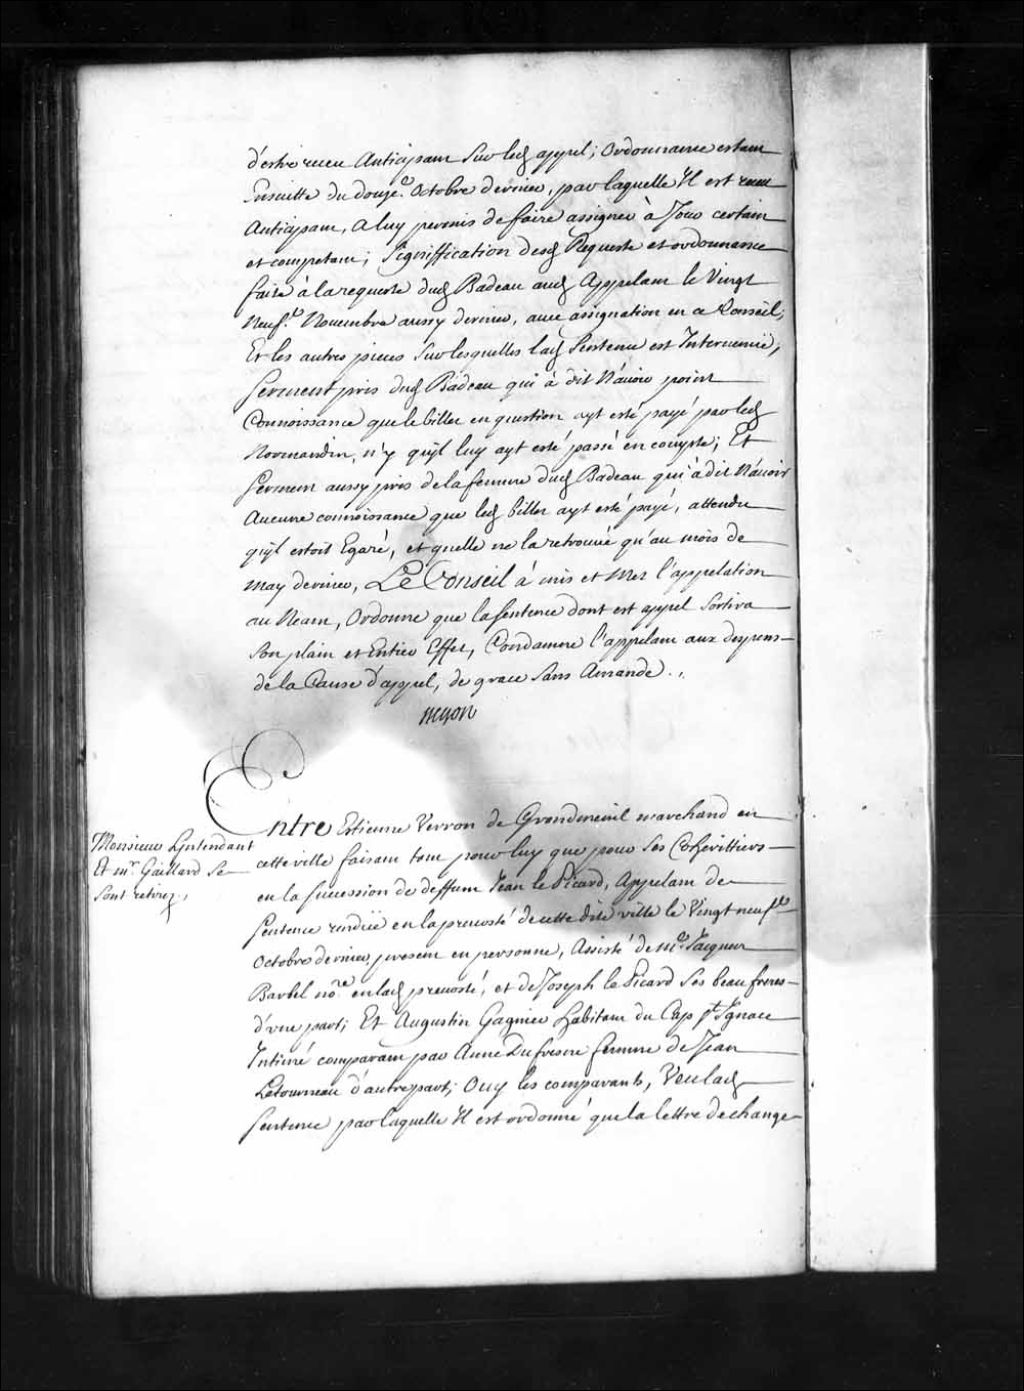 d'estre receu Anticipam Sur led appel; ordonnance estam
Ensuitte du douze.e Octobre dernier, par laquelle Il est receu
Anticipam, a luy permis de faire assigner à Jour certain
et competam; Signiffication desd Requeste et ordonnance
faite à la requeste dud Badeau aud Appelam le Vingt
Neuf.e Nouembre aussy dernier, auec assignation en ce Conseil;
Et les autres pieces Sur lesquelles lad Sentence est Interuenüe,
Serment pris dud Badeau qui à dit N'auoir point
Connoissance que le billet en question ayt esté payé par led
Normandin, n'y qu'jl luy ayt esté passé en compte; Et
Serment aussy pris de la femme dud Badeau qui à dit N'auoir
Aucune connoissance que led billet ayt esté payé, attendu
qu'jl estoit Egaré, et quelle ne la retrouué qu'au mois de
may dernier, Le Conseil à mis et Met l'appelation
au Neant, Ordonne que la Sentence dont est appel Sortira
Son plain et Entier Effet, Condamne l'appelam aux depens
de la Cause d'appel, de grace Sans Amande.
Entre Estienne Verron de Grandmenil marchand en
Monsieur Lintendant
Et mr. Gaillard Se
Sont retirez,
cette ville faisam tam pour luy que pour Ses Coheritiers
en la Sucession de deffunt Jean le Picard, Appelam de
Sentence rendüe en la preuosté de cette dite ville le Vingt neuf.e
Octobre dernier, presem en personne, Assisté de m.e Jacques
Barbel no.re en lad preuosté, et de Joseph le Picard Ses beau freres
d'vne part; Et Augustin Gagnier habitam du Cap St Ignace
Intimé comparam par Anne Dufresne femme de Jean
Letourneau d'autre part; Ouy les comparants, Veu lad
Sentence par laquelle Il est ordonné que la lettre de change